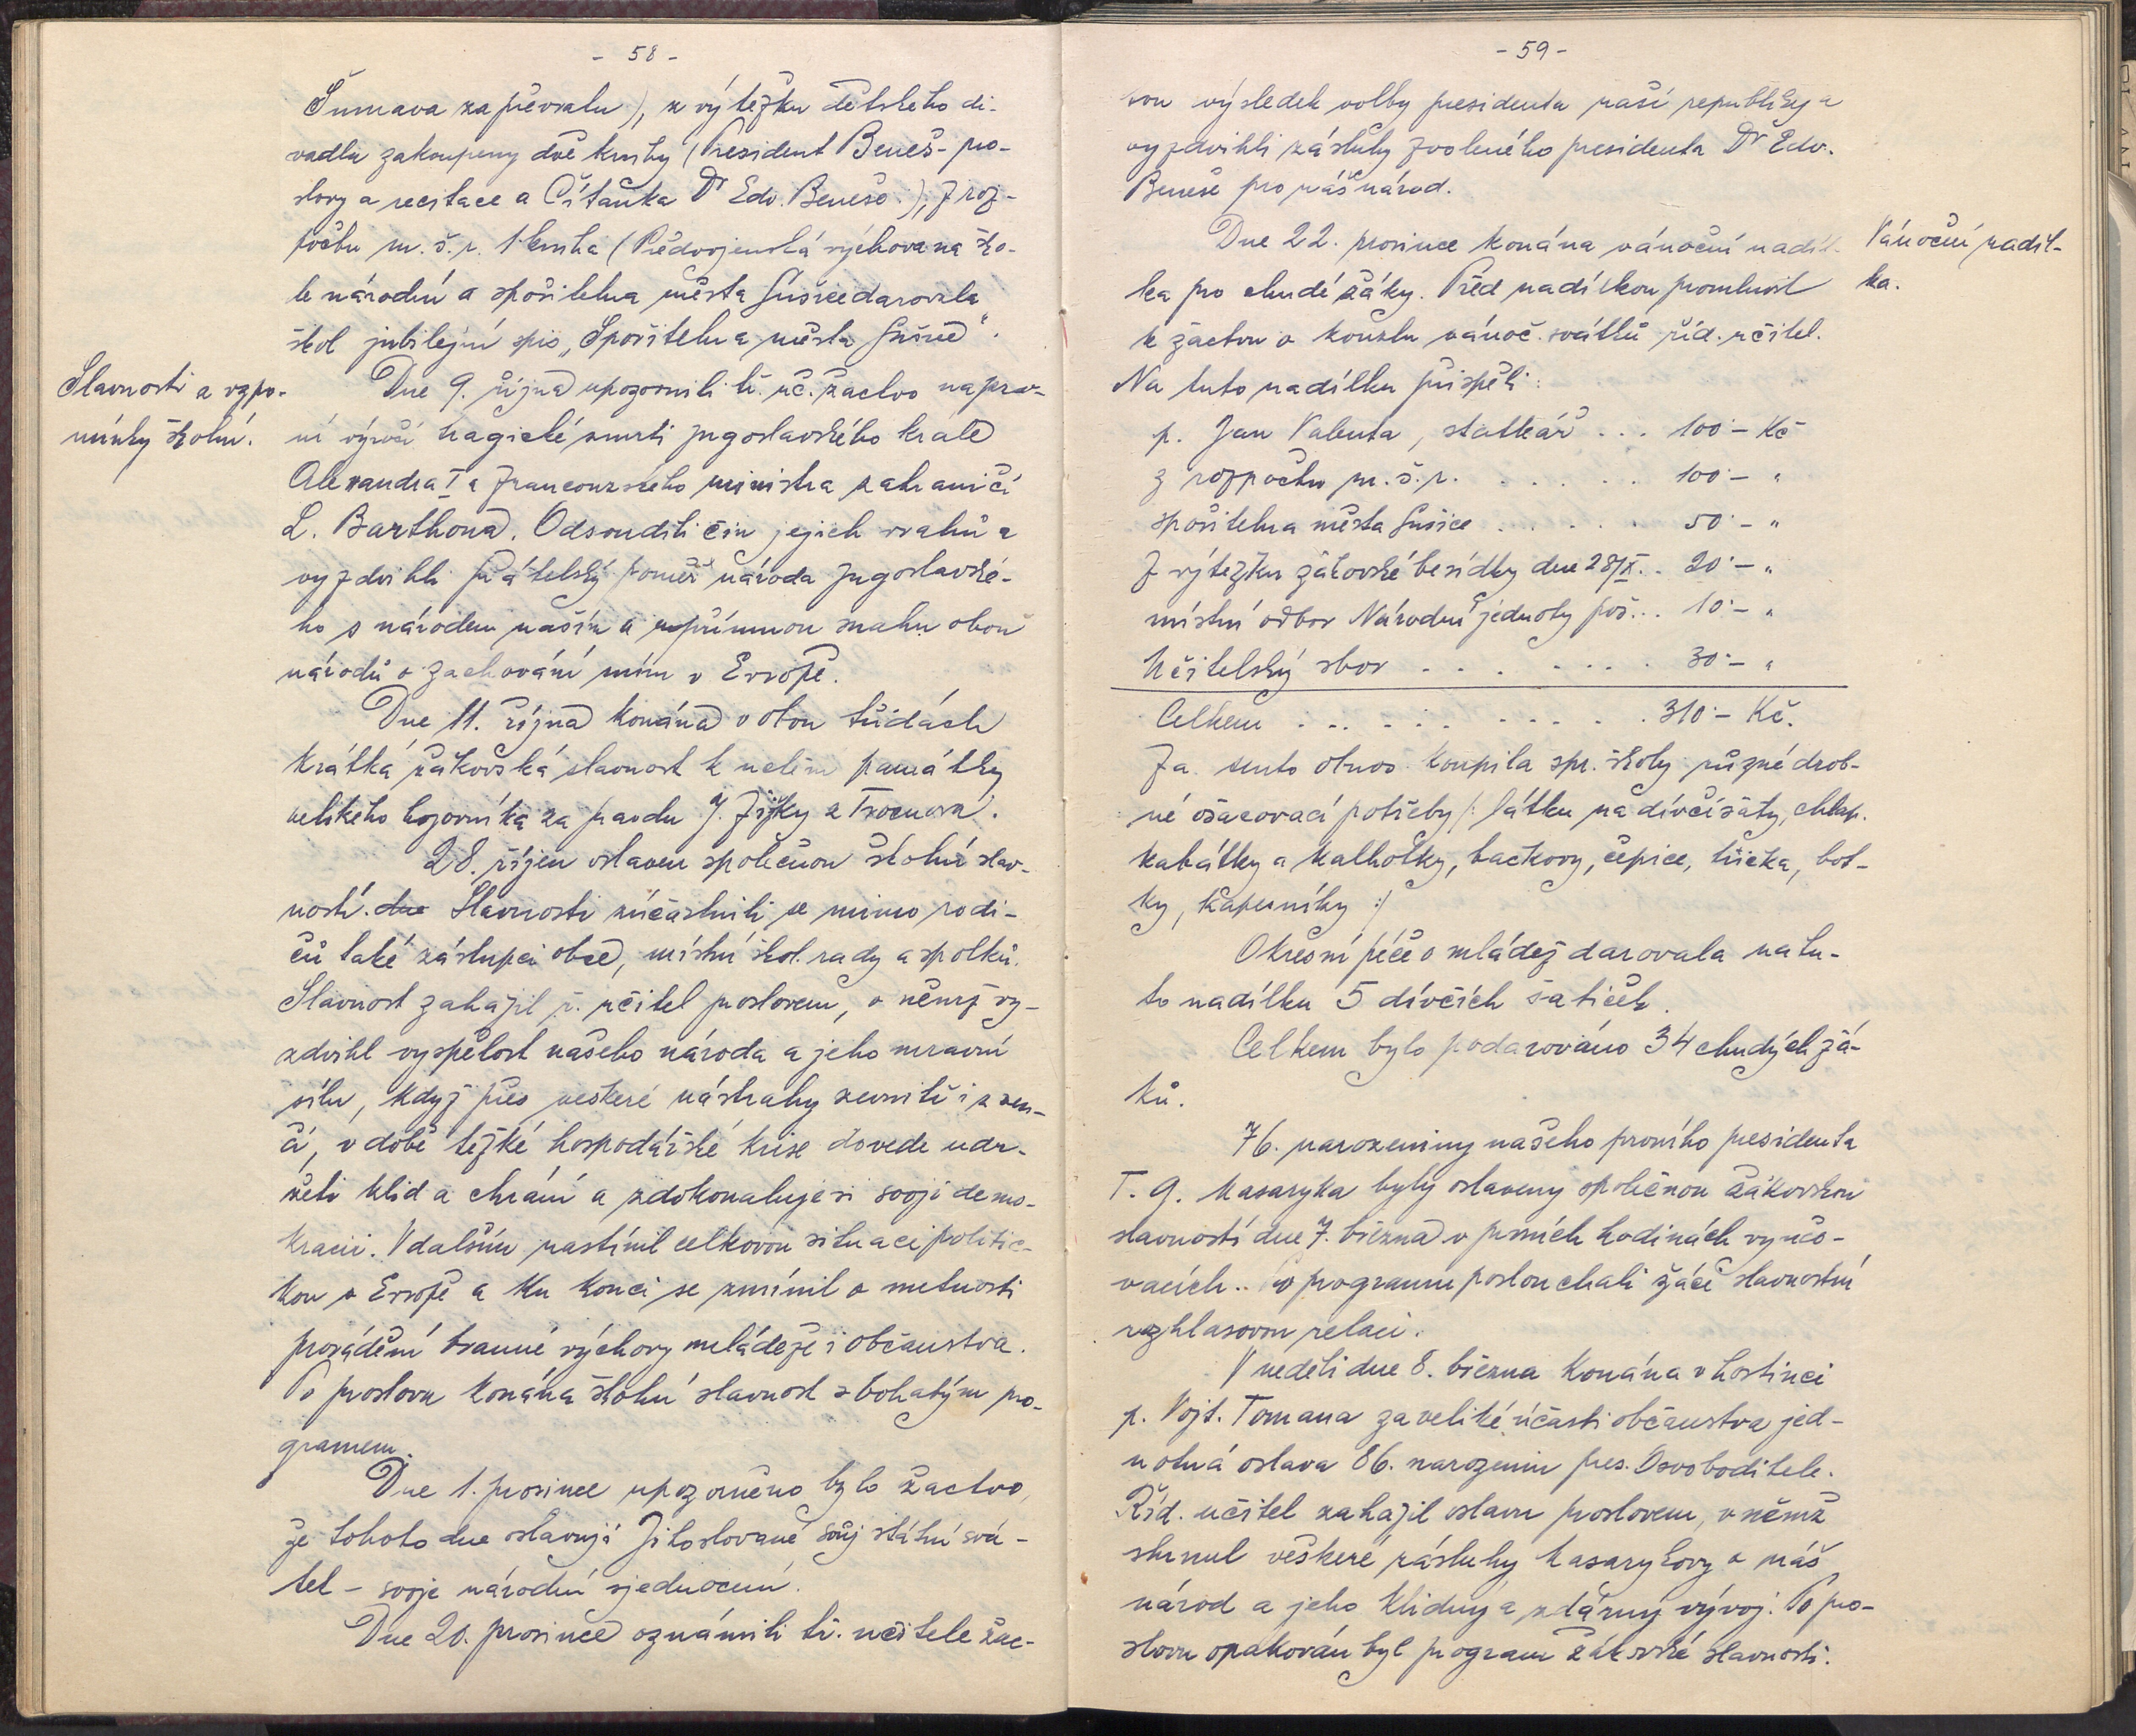 - 58 -
Šumava za převratu), z výtěžku dětského di-
vadla zakoupeny dvě knihy (President Beneš - pro-
slovy a recitace a Čítanka Dr Edv. Beneše.), z roz-
počtu m. š. r. 1 kniha (Předvojenská výchova na ško-
le národní a spořitelna města Sušice darovala
škol jubilejní spis „Spořitelna města Sušice".
Slavnosti a vzpo-
mínky školní.
Dne 9. října upozornili tř. uč. žactvo na prv-
ní výročí tragické smrti jugoslavského krále
Alexandra I a francouzského ministra zahraničí
L. Barthoua. Odsoudili čin jejich vrahů a
vyzdvihli přátelský poměr národa jugoslavské-
ho s národem naším a upřímnou snahu obou
národů o zachování míru v Evropě.
Dne 11. října konána v obou třídách
krátká žákovská slavnost k uctění památky
velikého bojovníka za pravdu J. Žižky z Trocnova.
28. říjen oslaven společnou školní slav-
ností. dne Slavnosti zúčastnili se mimo rodi-
čů také zástupci obce, místní škol. rady a spolků.
Slavnost zahájil ř. učitel proslovem, v němž vy-
zdvihl vyspělost našeho národa a jeho mravní
sílu, když přes veškeré nástrahy zevnitř i z ven-
čí, v době těžké hospodářské krise dovede udr-
žeti klid a chrání a zdokonaluje si svoji demo-
kracii. V dalším nastínil celkovou situaci politic-
kou v Evropě a ku konci se zmínil o nutnosti
provádění branné výchovy mládeže i občanstva.
Po proslovu konána školní slavnost s bohatým pro-
gramem.
Dne 1. prosince upozorněno bylo žactvo,
že tohoto dne oslavují Jihoslované svůj státní svá-
tek - svoje národní sjednocení.
Dne 20. prosince oznámili tř. učitelé žac-
- 59 -
tvu výsledek volby presidenta naší republiky a
vyzdvihli zásluhy zvoleného presidenta Dr Edv.
Beneše pro náš národ.
Vánoční nadíl-
ka.
Dne 22. prosince konána vánoční nadíl-
ka pro chudé žáky. Před nadílkou promluvil
k žactvu o kouzlu vánoč. svátků říd. učitel.
Na tuto nadílku přispěli:
p. Jan Valenta, statkář . . . 100·- Kč
z rozpočtu m. š. r. . . . . . . 100·- "
spořitelna města Sušice . . . . . 50·- "
z výtěžku žákovské besídky dne 28/X. . 20·- "
místní odbor Národní jednoty poš. . . 10·- "
Učitelský sbor . . . . . . . 30·- "
Celkem . . . . . . . . . . 310·- Kč.
Za tento obnos koupila spr. školy různé drob-
né ošacovací potřeby /: látku na dívčí šaty, chlap.
kabátky a kalhotky, bačkory, čepice, trička, bot-
ky, kapesníky :/
Okresní péče o mládež darovala na tu-
to nadílku 5 dívčích šatiček.
Celkem bylo podarováno 34 chudých žá-
ků.
76. narozeniny našeho prvního presidenta
T. G. Masaryka byly oslaveny společnou žákovskou
slavností dne 7. března v prvních hodinách vyučo-
vacích.. programu poslouchali žáci slavnostní
rozhlasovou relaci.
V neděli dne 8. března konána v hostinci
p. Vojt. Tomana za veliké účasti občanstva jed-
notná oslava 86. narozenin pres. Osvoboditele.
Říd. učitel zahájil oslavu proslovem, v němž
shrnul veškeré zásluhy Masarykovy o náš
národ a jeho klidný a zdárný vývoj. Po pro-
slovu opakován byl program žákovské slavnosti.